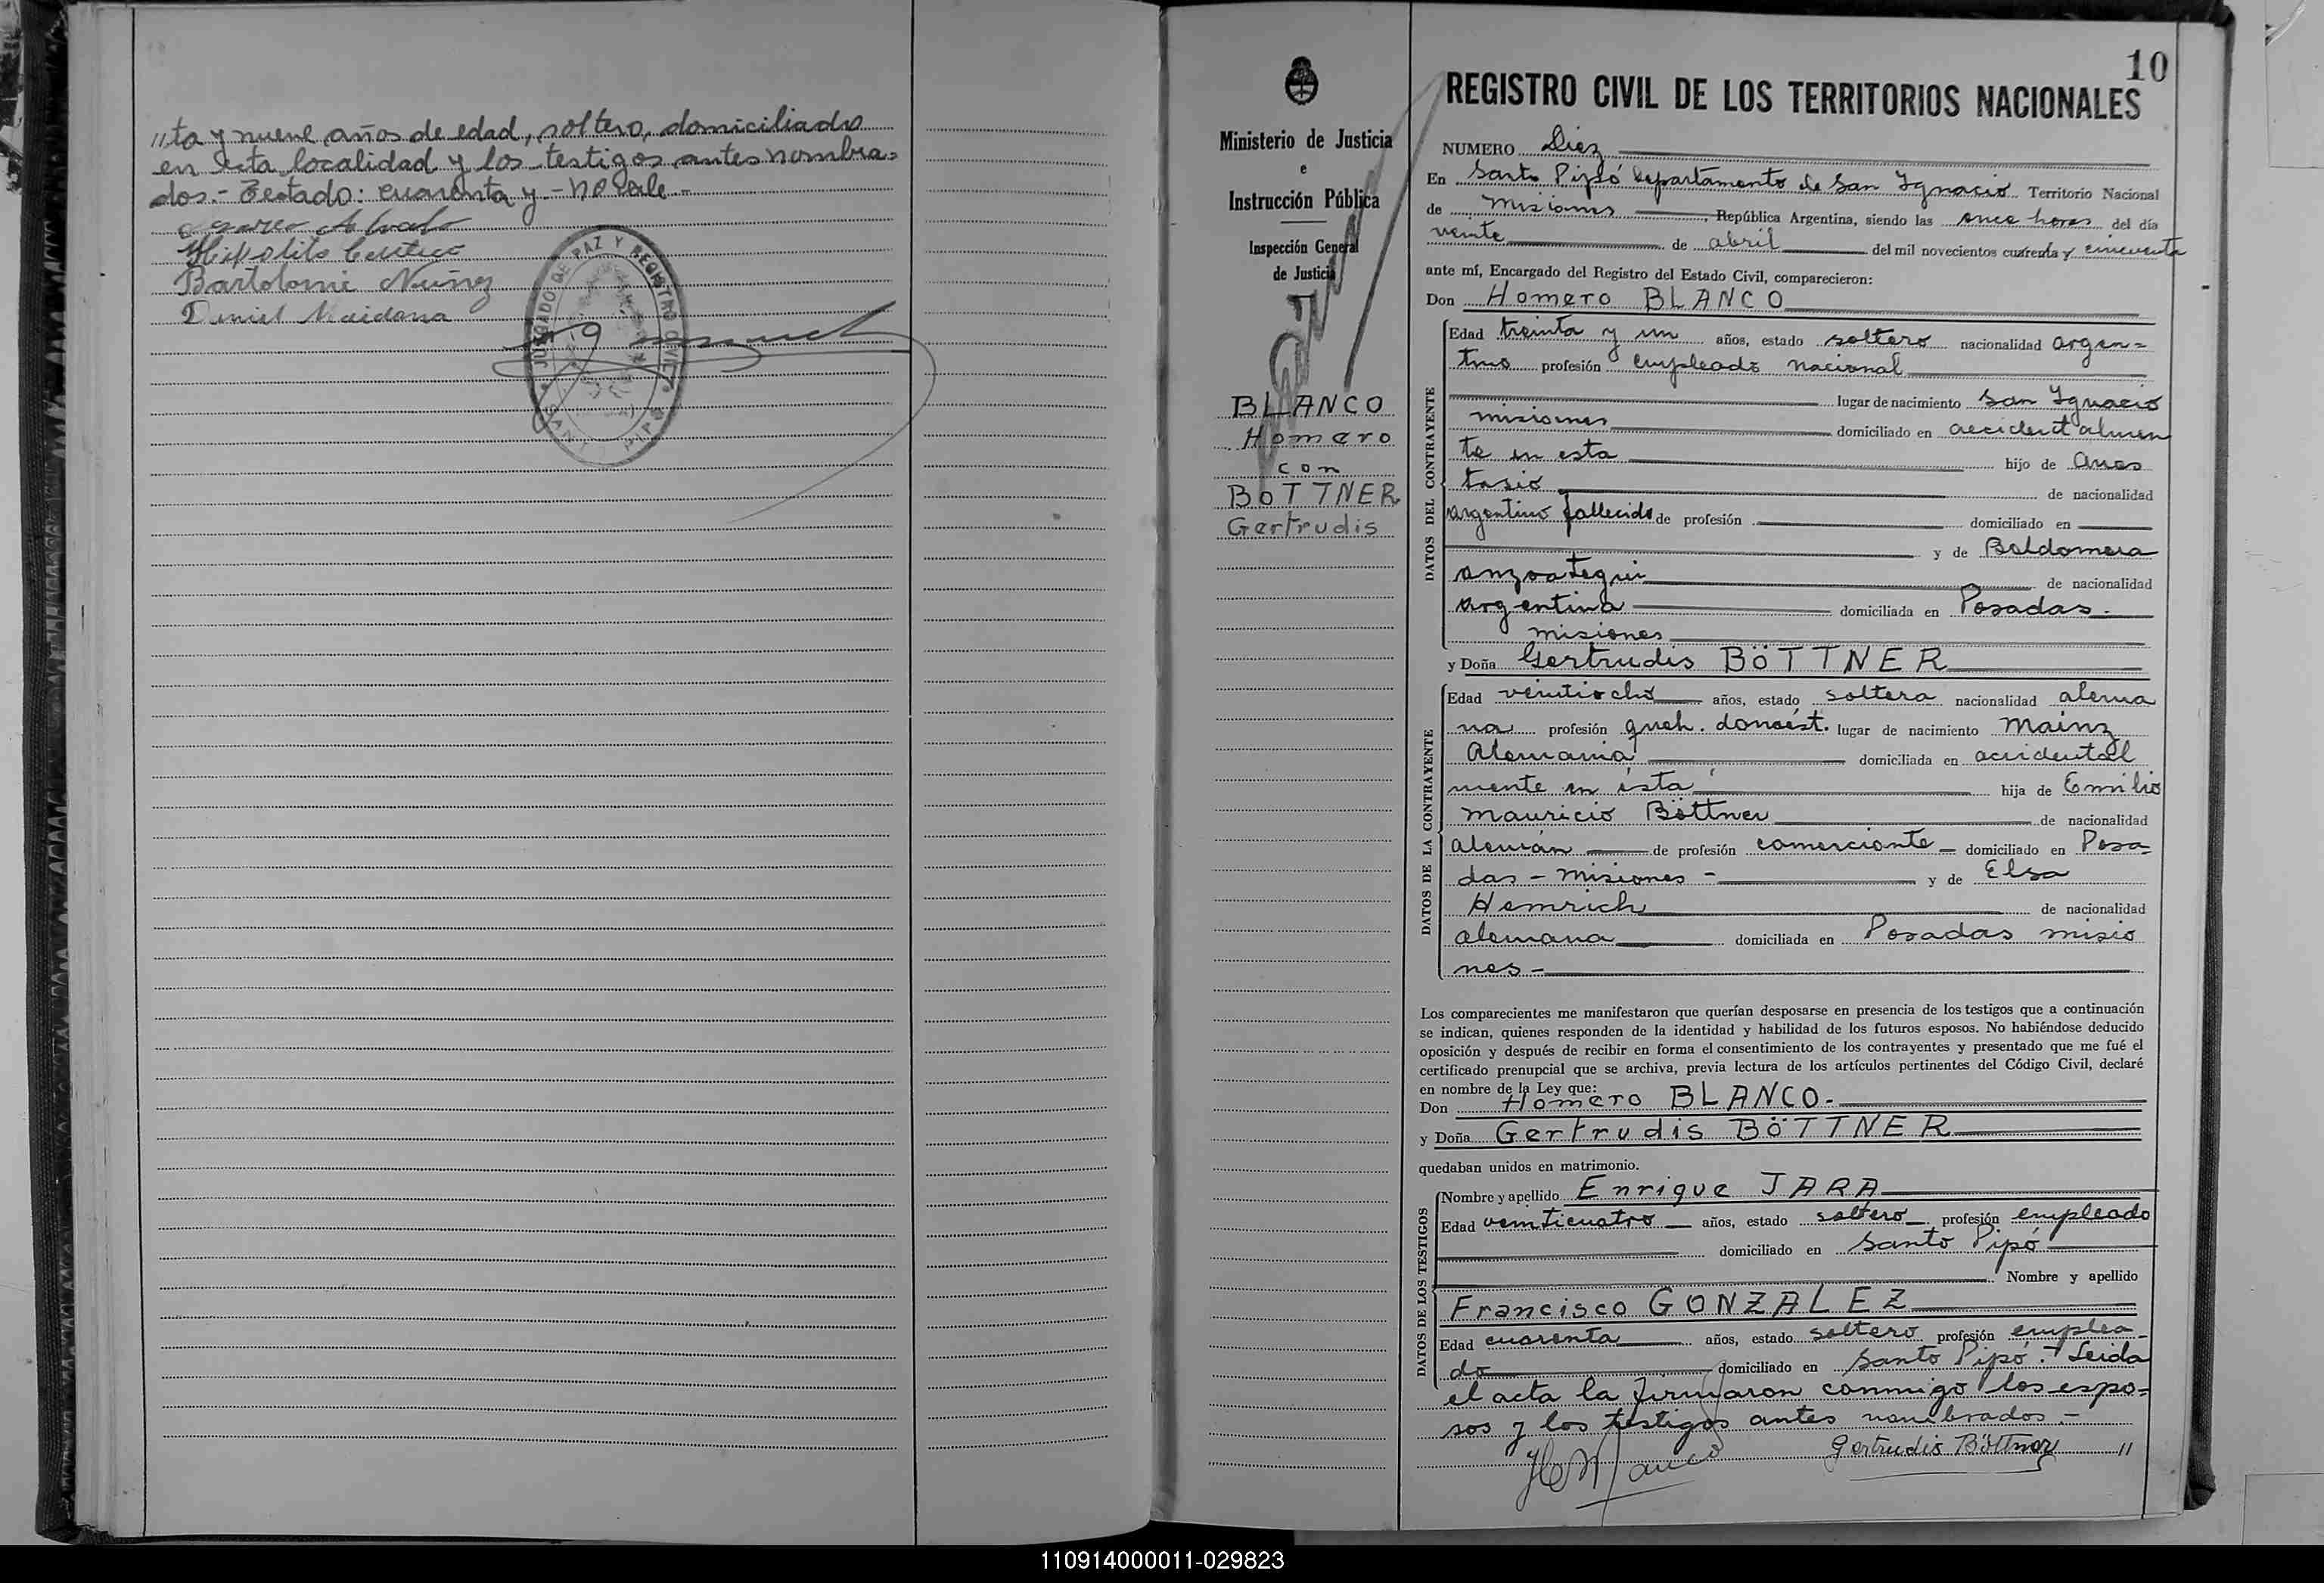 //ta y nueve años de edad, soltero, domiciliado
en esta localidad y los testigos antes nombra=
dos.- Testado: cuarenta y - no vale -
Bartolomé Núñez
Daniel Maidana
JUZGADO DE PAZ Y REGISTRO CIVIL
10
Ministerio de Justicia
e
Instrucción Pública
Inspección General
de Justicia
BLANCO
Homero
con
BOTTNER
Gertrudis
REGISTRO CIVIL DE LOS TERRITORIOS NACIONALES
NUMERO Diez
En Santo Pipó departamento de San Ygnacio Territorio Nacional
de misiones, República Argentina, siendo las once horas del día
veinte de abril del mil novecientos cuarenta y cincuenta
ante mí, Encargado del Registro del Estado Civil, comparecieron:
Don Homero BLANCO
DATOS DEL CONTRAYENTE
Edad treinta y un años, estado soltero nacionalidad argen=
tino profesión empleado nacional
lugar de nacimiento San Ygnacio
misiones domiciliado en accidentalmen
te en esta hijo de Anas
tasio de nacionalidad
argentino fallecido de profesión domiciliado en
y de Baldomera
anzoategui de nacionalidad
argentina domiciliada en Posadas.
misiones
y Doña Gertrudis BÖTTNER
DATOS DE LA CONTRAYENTE
Edad veintiocho años, estado soltera nacionalidad alema
na profesión queh. domést. lugar de nacimiento Mainz
Alemania domiciliada en accidental
mente en ésta hija de Emilio
Mauricio Böttner de nacionalidad
alemán de profesión comerciante domiciliado en Posa=
das - Misiones - y de Elsa
Hemrich de nacionalidad
alemana domiciliada en Posadas misio
nes -
Los comparecientes me manifestaron que querían desposarse en presencia de los testigos que a continuación
se indican, quienes responden de la identidad y habilidad de los futuros esposos. No habiéndose deducido
oposición y después de recibir en forma el consentimiento de los contrayentes y presentado que me fué el
certificado prenupcial que se archiva, previa lectura de los artículos pertinentes del Código Civil, declaré
en nombre de la Ley que:
Don Homero BLANCO.-
y Doña Gertrudis BÖTTNER
quedaban unidos en matrimonio.
DATOS DE LOS TESTIGOS
Nombre y apellido Enrique JARA
Edad veinticuatro años, estado soltero profesión empleado
domiciliado en Santo Pipó
Nombre y apellido
Francisco GONZALEZ
Edad cuarenta años, estado soltero profesión emplea
do domiciliado en Santo Pipó.- Leida
el acta la firmaron conmigo los espo=
sos y los testigos antes nombrados.-
HBlanco Gertrudis Böttner //
110914000011-029823